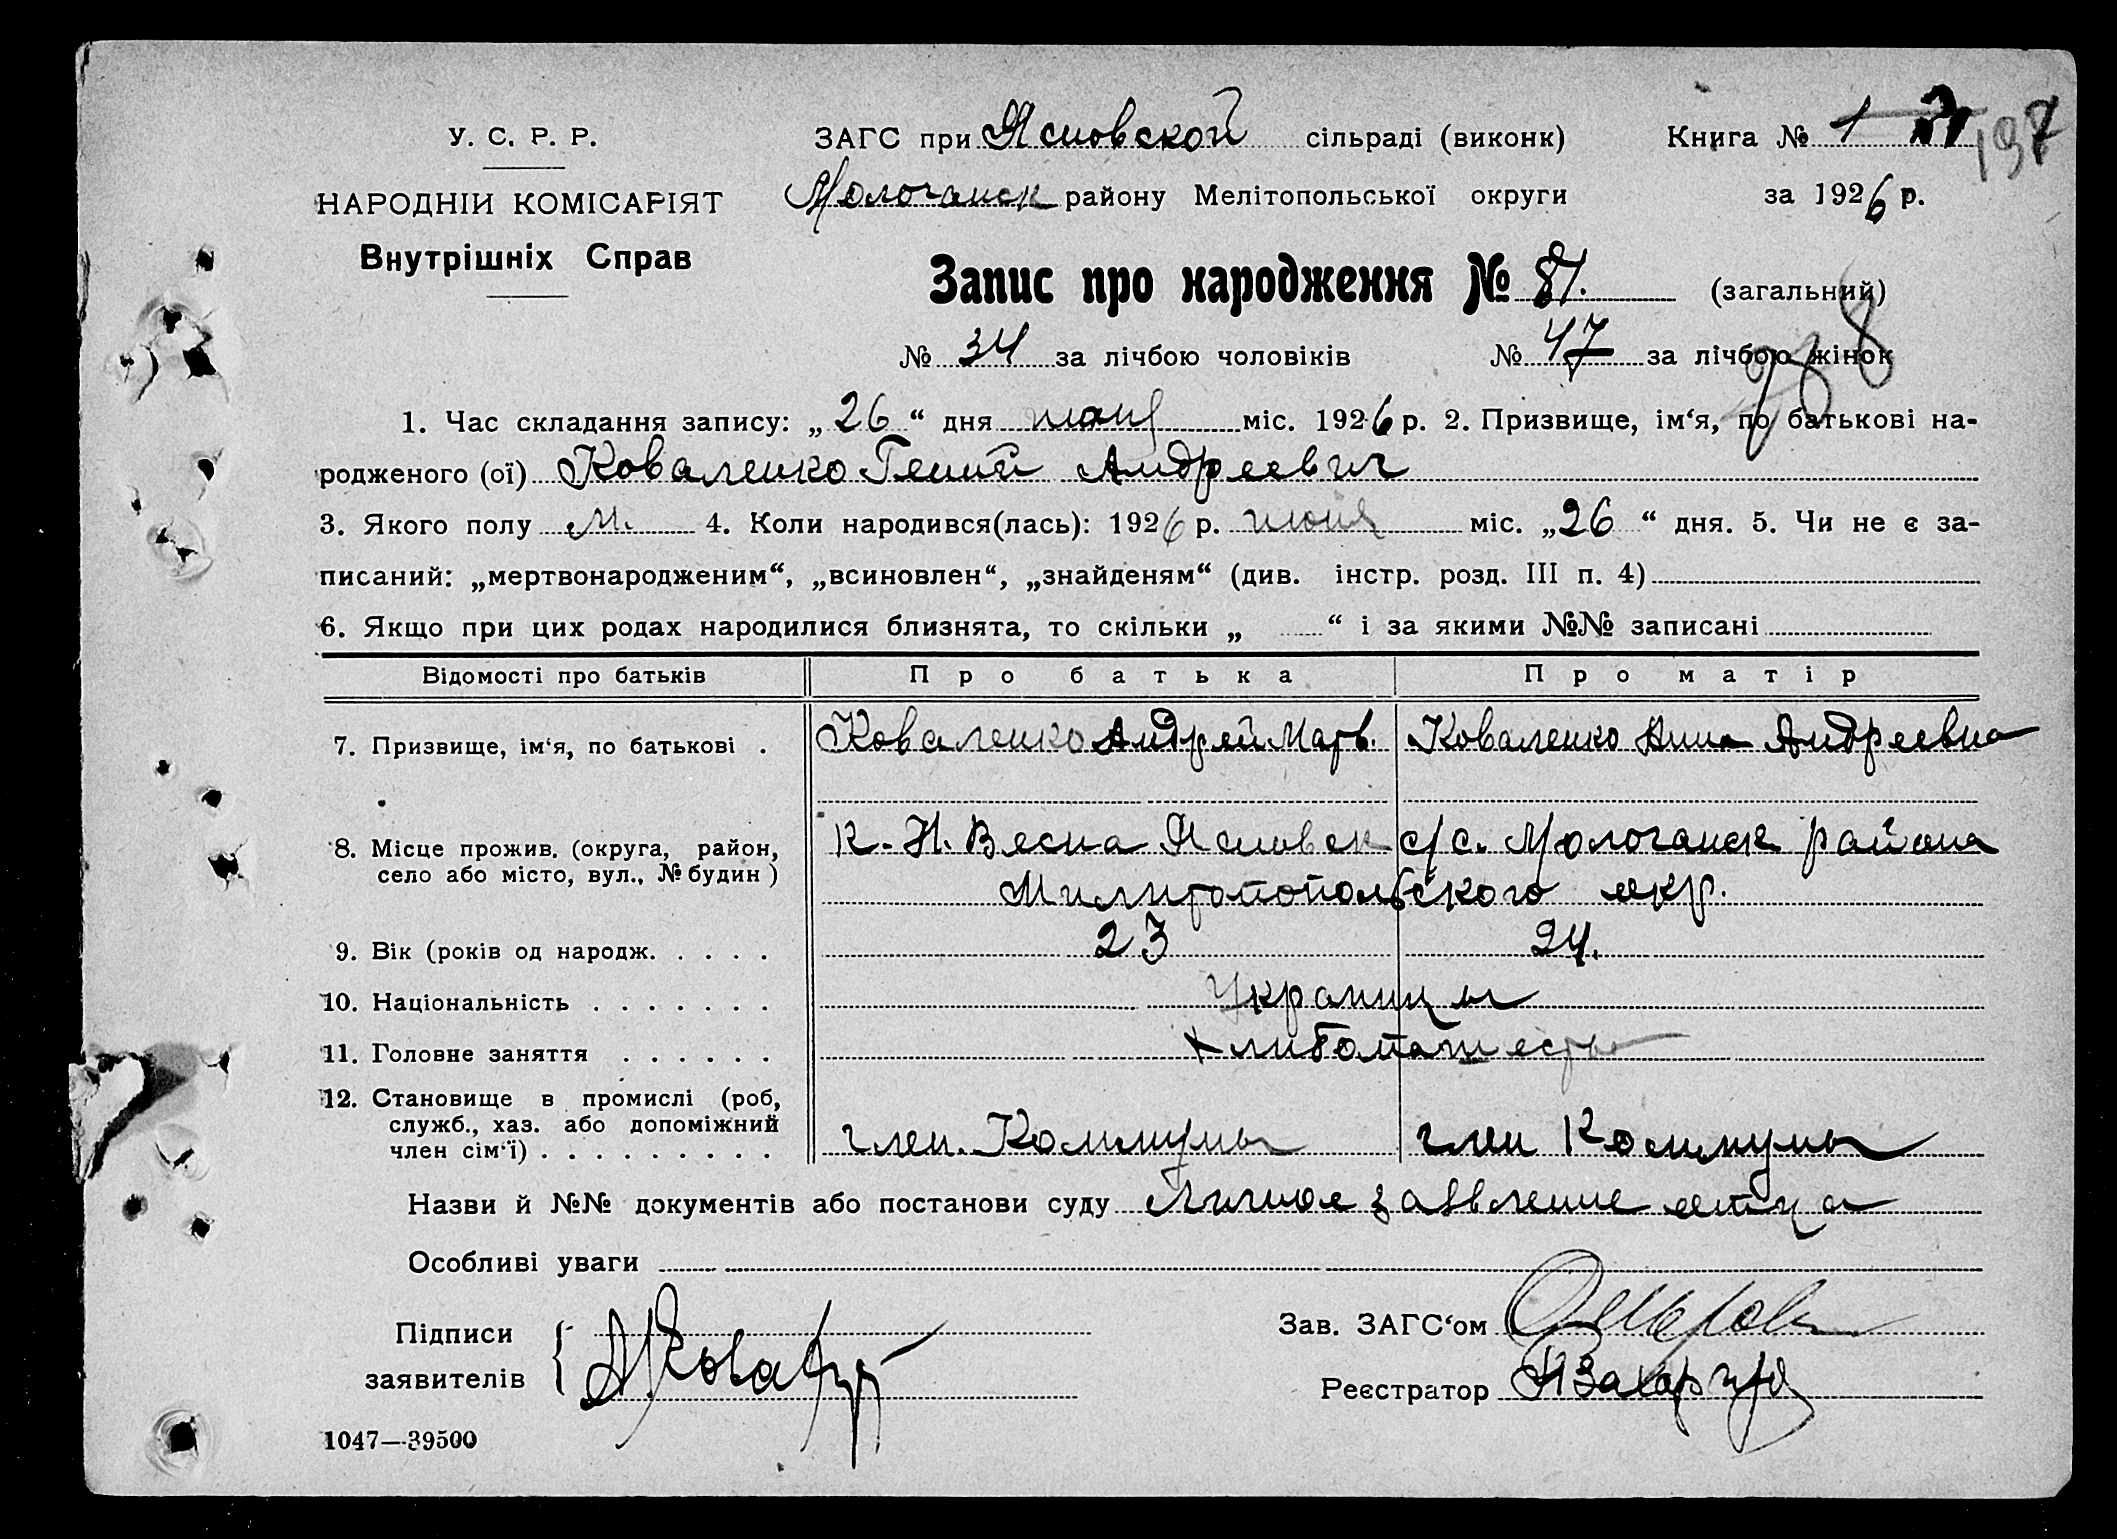 У. С. Р. Р.
НАРОДНІЙ КОМІСАРІЯТ
Внутрішніх Справ
ЗАГС при Ясновской сільраді (виконк)
Молочанск району Мелітопольської округи
Книга № 1
197
за 1926 р.
Запис про народження № 81. (загальний)
№ 34 за лічбою чоловіків № 47 за лічбою жінок
1. Час складання запису: „26“ дня міс. 1926 р. 2. Призвище, ім‘я, по батькові на-
родженого (ої) Коваленко Гений Андреевич
3. Якого полу м. 4. Коли народився(лась): 1926 р. июня міс. „26“ дня. 5. Чи не є за-
писаний: „мертвонародженим“, „всиновлен“, „знайденям“ (див. інстр. розд. III п. 4)
6. Якщо при цих родах народилися близнята, то скільки „ “ і за якими №№ записані
Відомості про батьків Про батька Про матір
7. Призвище, ім‘я, по батькові . Коваленко Андрей Матв. Коваленко Анна Андреевна
8. Місце прожив. (округа, район, село або місто, вул., № будин) к. Н. Весна Ясновск с/с. Молочанск района
Милитопопольского окр.
9. Вік (років од народж. . . . . 23 24.
10. Національність . . . . . . . Украинцы
11. Головне заняття . . . . . . Хлибопашество
12. Становище в промислі (роб, служб., хаз. або допоміжний член сім‘ї) . . . . . . . . . член. Коммуны член Коммуны
Назви й №№ документів або постанови суду Личное заявление отца
Особливі уваги
Підписи
заявителів
Зав. ЗАГС‘ом
Реєстратор
1047—39500